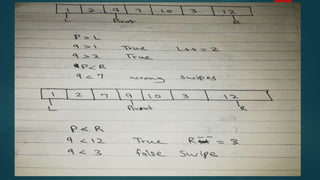 1 2 9 7 10 3 12
L Pivot R
P > L
9 > 1 True L++ = 2
9 > 2 True
P < R
9 < 7 wrong swipes
1 2 7 9 10 3 12
L Pivot R
P < R
9 < 12 True R-- = 3
9 < 3 false Swipe